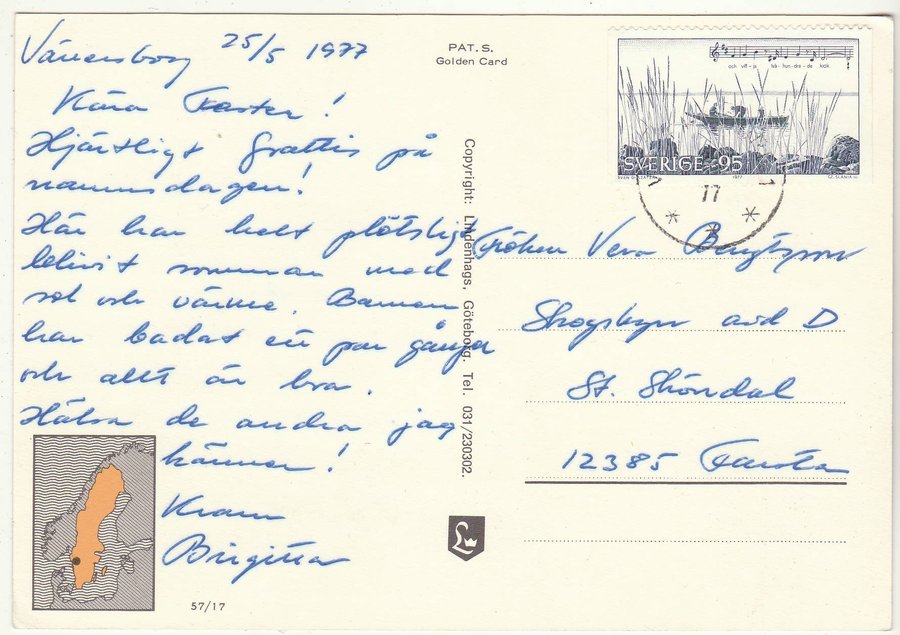 Vänersborg 25/5 1977
Kära Faster!
Hjärtligt grattis på
namnsdagen!
Här har helt plötsligt
blivit sommar med
sol och värme. Barnen
har badat ett par gånger
och allt är bra.
Hälsa de andra jag
känner!
Kram
Birgitta
57/17
PAT. S.
Golden Card
Copyright: Lindenhags, Göteborg. Tel. 031/230302.
L
och vitt - ja två - hun - dra - de kick
SVERIGE 95
1977
CZ. SLANIA SC.
17
1
Fröken Vera Bengtsson
Skogsbyn avd D
St. Sköndal
12385 Farsta